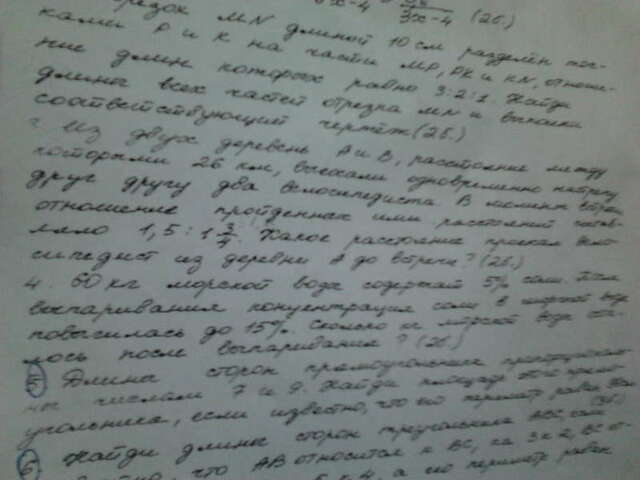 3x-4 (2б.)
резок MN длиной 10 см разделён точ-
ками P и K на части MP, PK и KN, отноше-
ние длин которых равно 3:2:1. Найди
длины всех частей отрезка MN и выполни
соответствующий чертёж (2б.)
Из двух деревень A и B, расстояние между
которыми 26 км, выехали одновременно навстречу
друг другу два велосипедиста. В момент встречи
отношение пройденных ими расстояний состав-
ляло 1,5 : 1 3/4. Какое расстояние проехал вело-
сипедист из деревни A до встречи? (2б.)
4. 60 кг морской воды содержат 5% соли. После
выпаривания концентрация соли в морской воде
повысилась до 15%. Сколько кг морской воды оста-
лось после выпаривания? (2б.)
5 Длины сторон прямоугольника пропорциональ-
ны числам 7 и 9. Найди площадь этого прямо-
угольника, если известно, что его периметр равен
6 Найди длины сторон треугольника ABC, если (3б.)
что AB относится к BC, как 3 к 2, BC от-
к 4, а его периметр равен